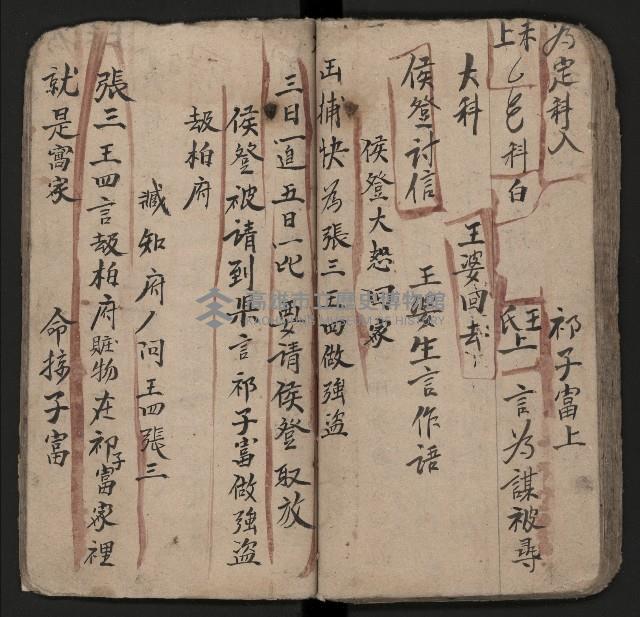 為定科入 祁子富上
未上乙邑科白 王氏上 言為謀被尋
大科 王婆回去
侯登討信 王婆生言作語
侯登大怒回家
王捕快為張三王四做強盜
三日一追五日一比 要請侯登取放
侯登被請到來言祁子富做強盜
刼柏府
臧知府ノ问王四張三
張三王四言刼柏府賍物在祁子富家裡
就是窩家 命掾子富
高雄市立歷史博物館
KAOHSIUNG MUSEUM OF HISTORY